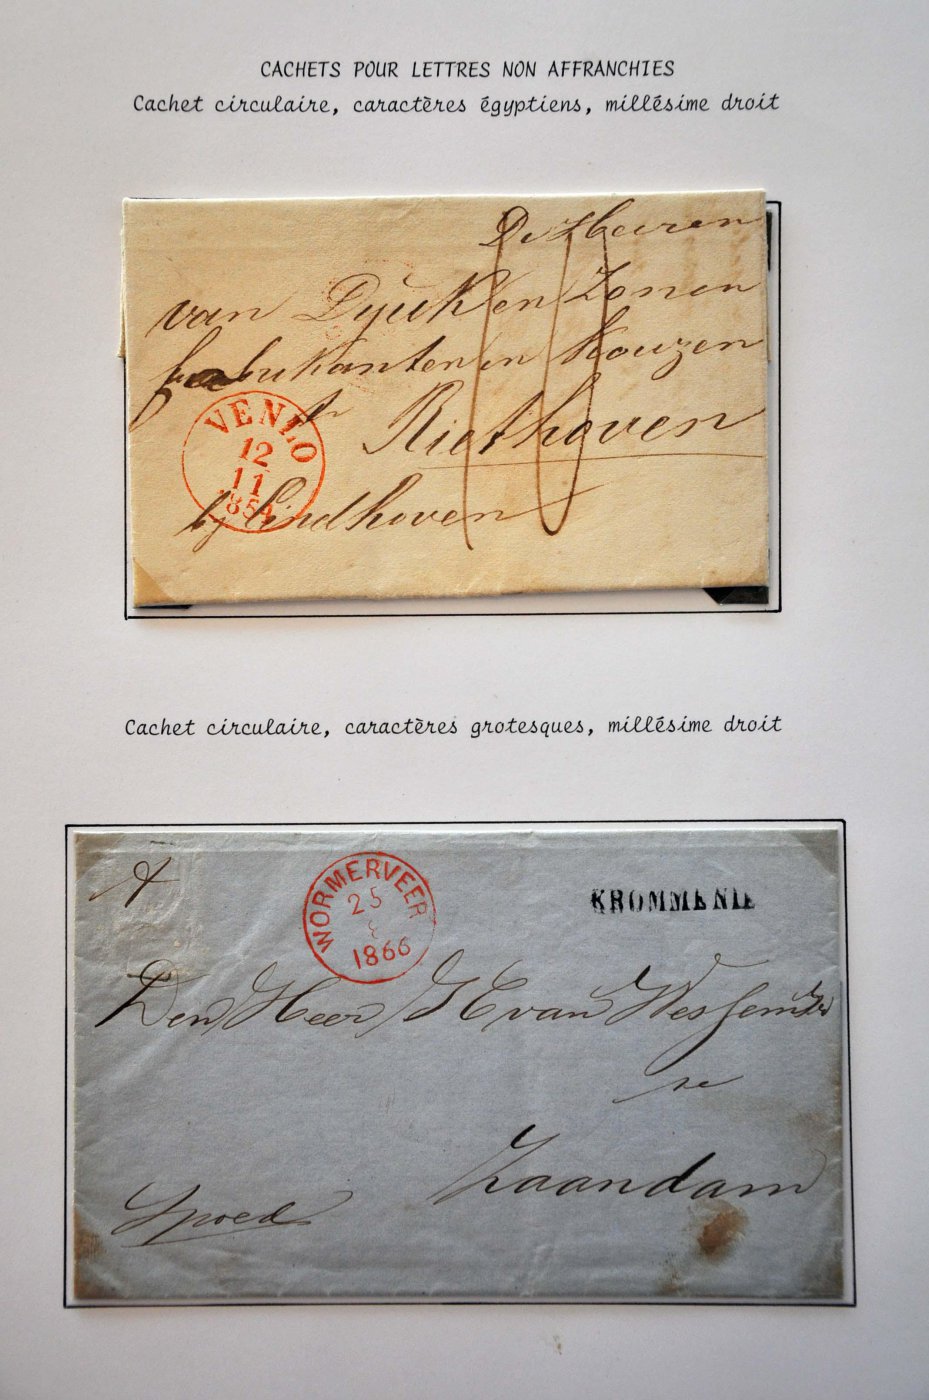 CACHETS POUR LETTRES NON AFFRANCHIES
Cachet circulaire, caractères égyptiens, millésime droit
De Heeren
van Dyck en Zonen
fabrikanten in Kouzen
te Riethoven
bij Eindhoven
VENLO
12
11
1854
10
Cachet circulaire, caractères grotesques, millésime droit
WORMERVEER
25
1866
KROMMENIE
Den Heer
van Wessem
te
Zaandam
Spoed